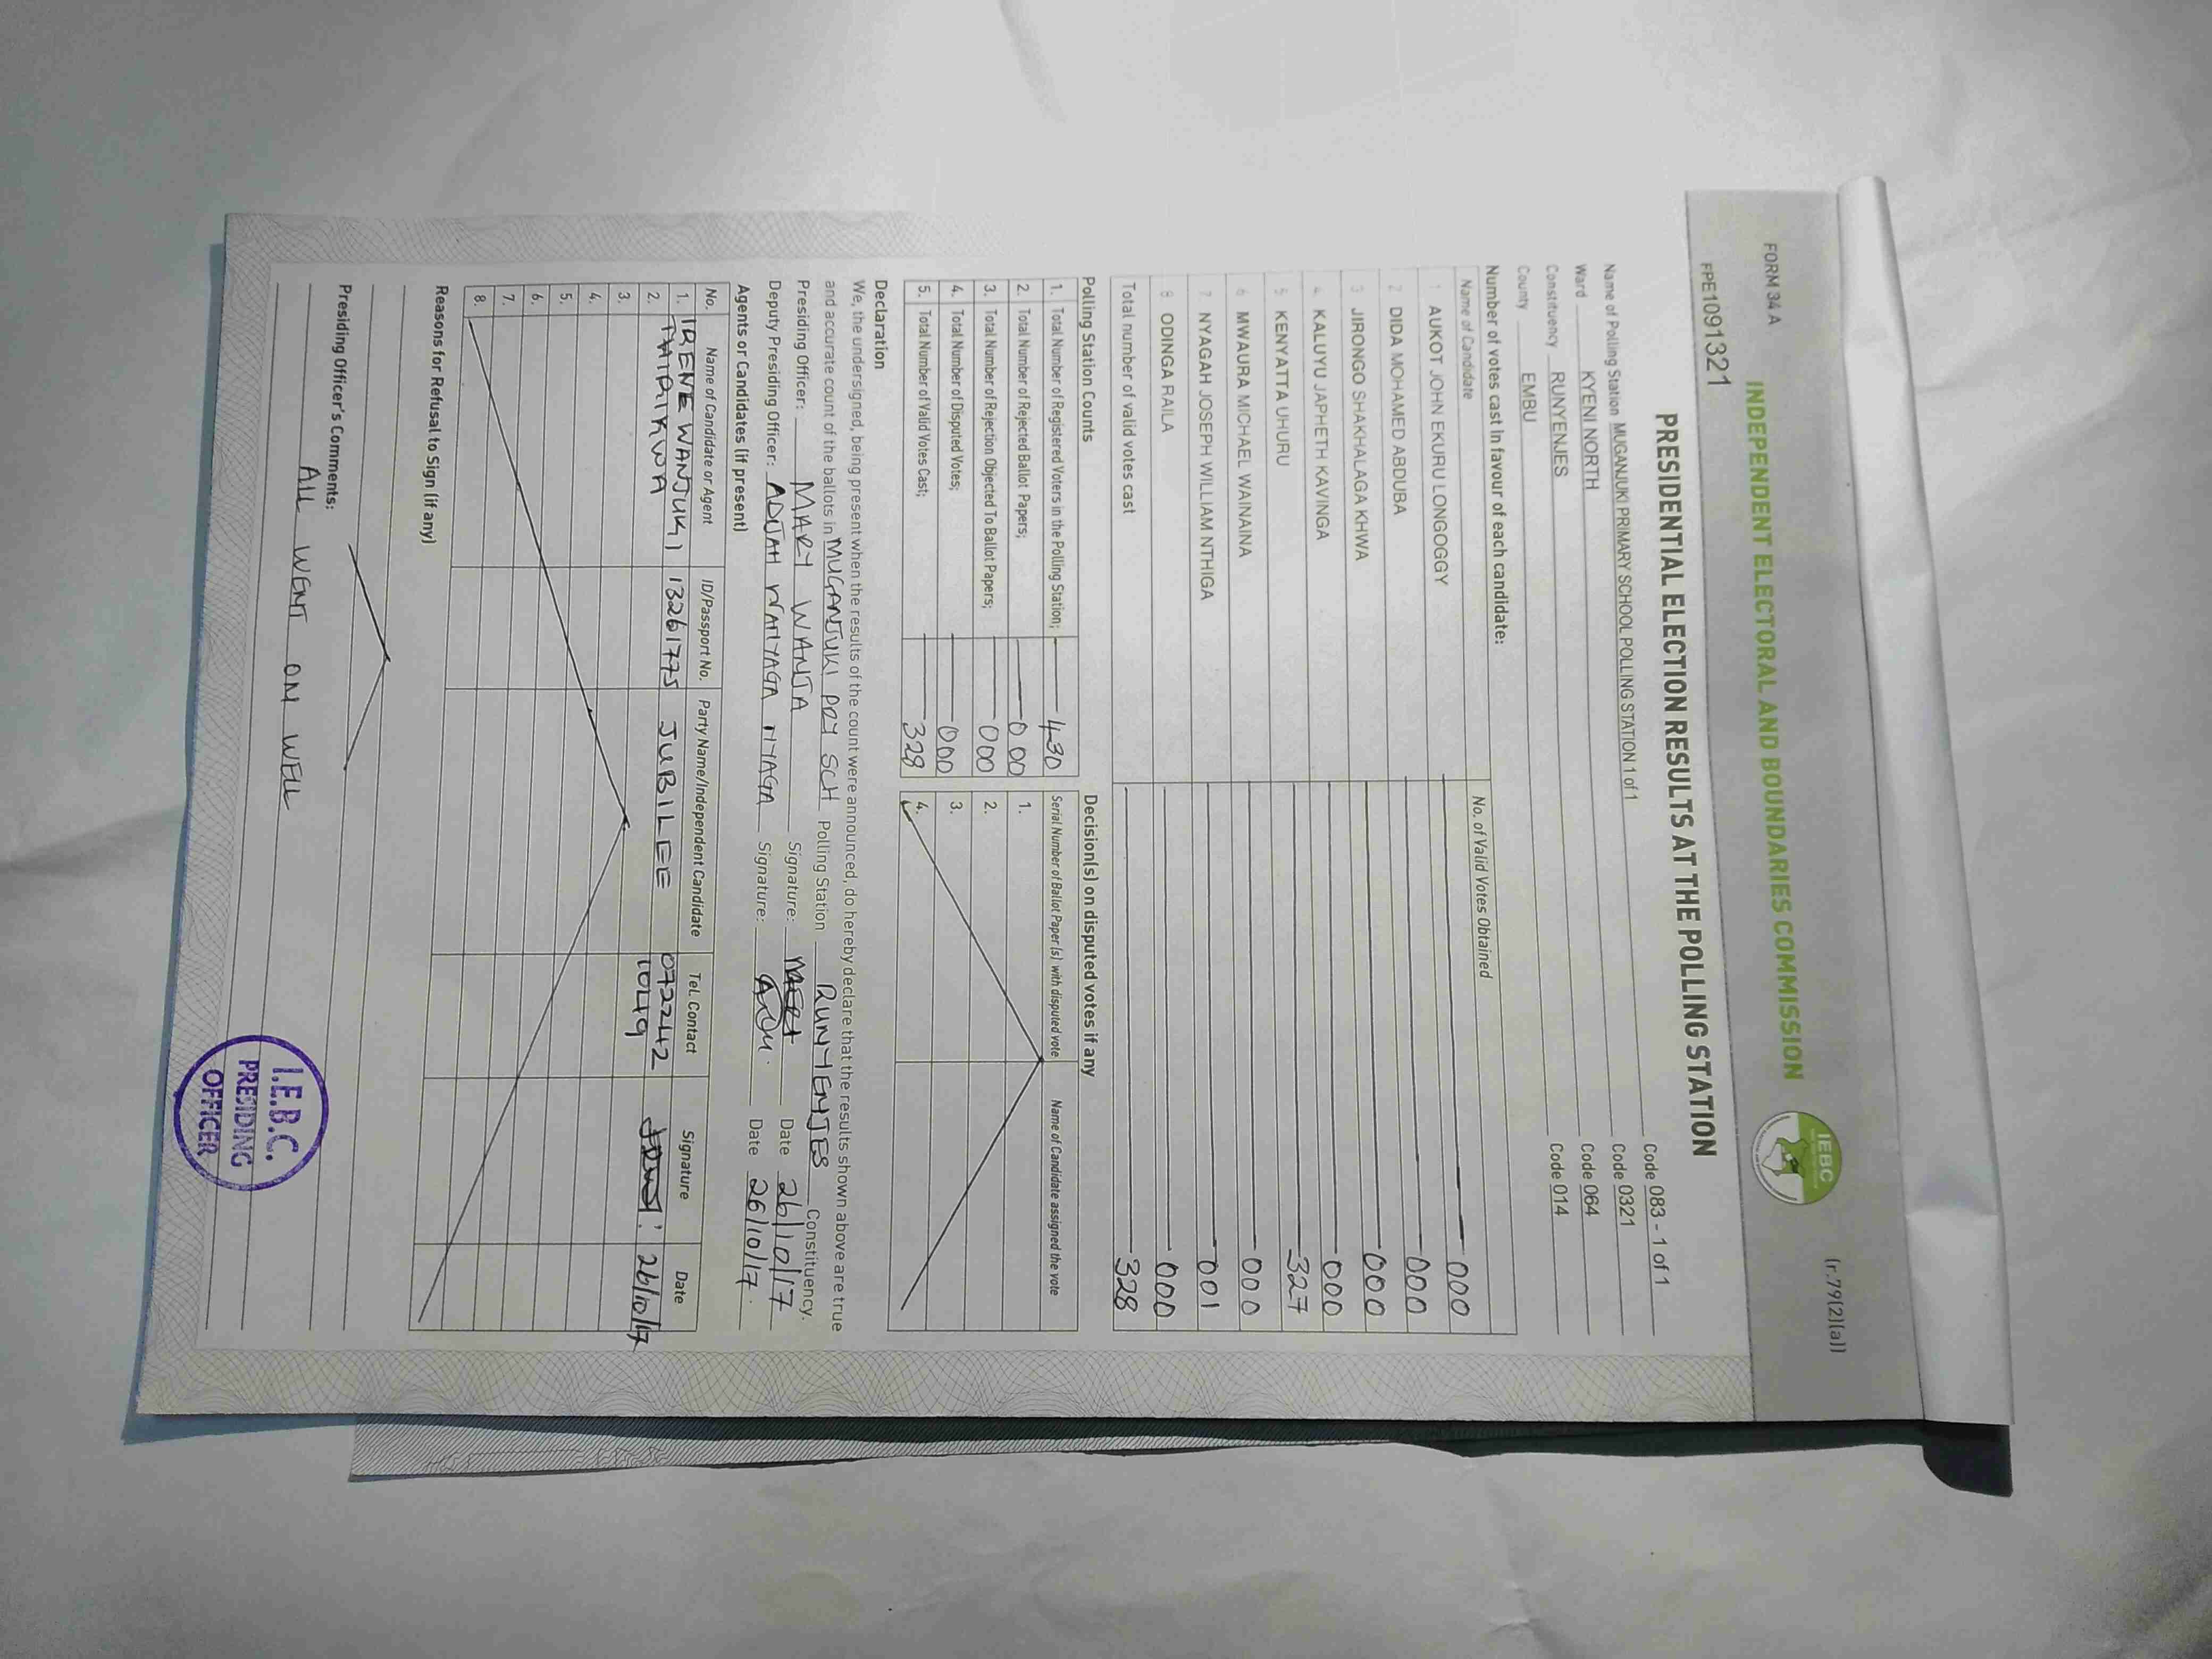 FORM 34 A
(r.79(2)(a))
INDEPENDENT ELECTORAL AND BOUNDARIES COMMISSION
IEBC
FPE1091321
PRESIDENTIAL ELECTION RESULTS AT THE POLLING STATION
Name of Polling Station MUGANJUKI PRIMARY SCHOOL POLLING STATION 1 of 1 Code 083 - 1 of 1
Ward KYENI NORTH Code 0321
Constituency RUNYENJES Code 064
County EMBU Code 014
Number of votes cast in favour of each candidate:
Name of Candidate No. of Valid Votes Obtained
1 AUKOT JOHN EKURU LONGOGGY 000
2 DIDA MOHAMED ABDUBA 000
3 JIRONGO SHAKHALAGA KHWA 000
4 KALUYU JAPHETH KAVINGA 000
5 KENYATTA UHURU 327
6 MWAURA MICHAEL WAINAINA 000
7 NYAGAH JOSEPH WILLIAM NTHIGA 001
8 ODINGA RAILA 000
Total number of valid votes cast 328
Polling Station Counts
1. Total Number of Registered Voters in the Polling Station; 430
2. Total Number of Rejected Ballot Papers; 000
3. Total Number of Rejection Objected To Ballot Papers; 000
4. Total Number of Disputed Votes; 000
5. Total Number of Valid Votes Cast; 328
Decision(s) on disputed votes if any
Serial Number of Ballot Paper (s) with disputed vote Name of Candidate assigned the vote
1.
2.
3.
4.
Declaration
We, the undersigned, being present when the results of the count were announced, do hereby declare that the results shown above are true
and accurate count of the ballots in MUGANJUKI PRY SCH Polling Station RUNYENJES Constituency.
Presiding Officer: MARY WANJA Signature: Date 26/10/17
Deputy Presiding Officer: Signature: Date 26/10/17.
Agents or Candidates (if present)
No. Name of Candidate or Agent ID/Passport No. Party Name/Independent Candidate Tel. Contact Signature Date
1. IRENE WANJUKI 13261775 JUBILEE 0722242
2. 1049 26/10/17
3.
4.
5.
6.
7.
8.
Reasons for Refusal to Sign (if any)
Presiding Officer's Comments:
ALL WENT ON WELL
I.E.B.C.
PRESIDING
OFFICER